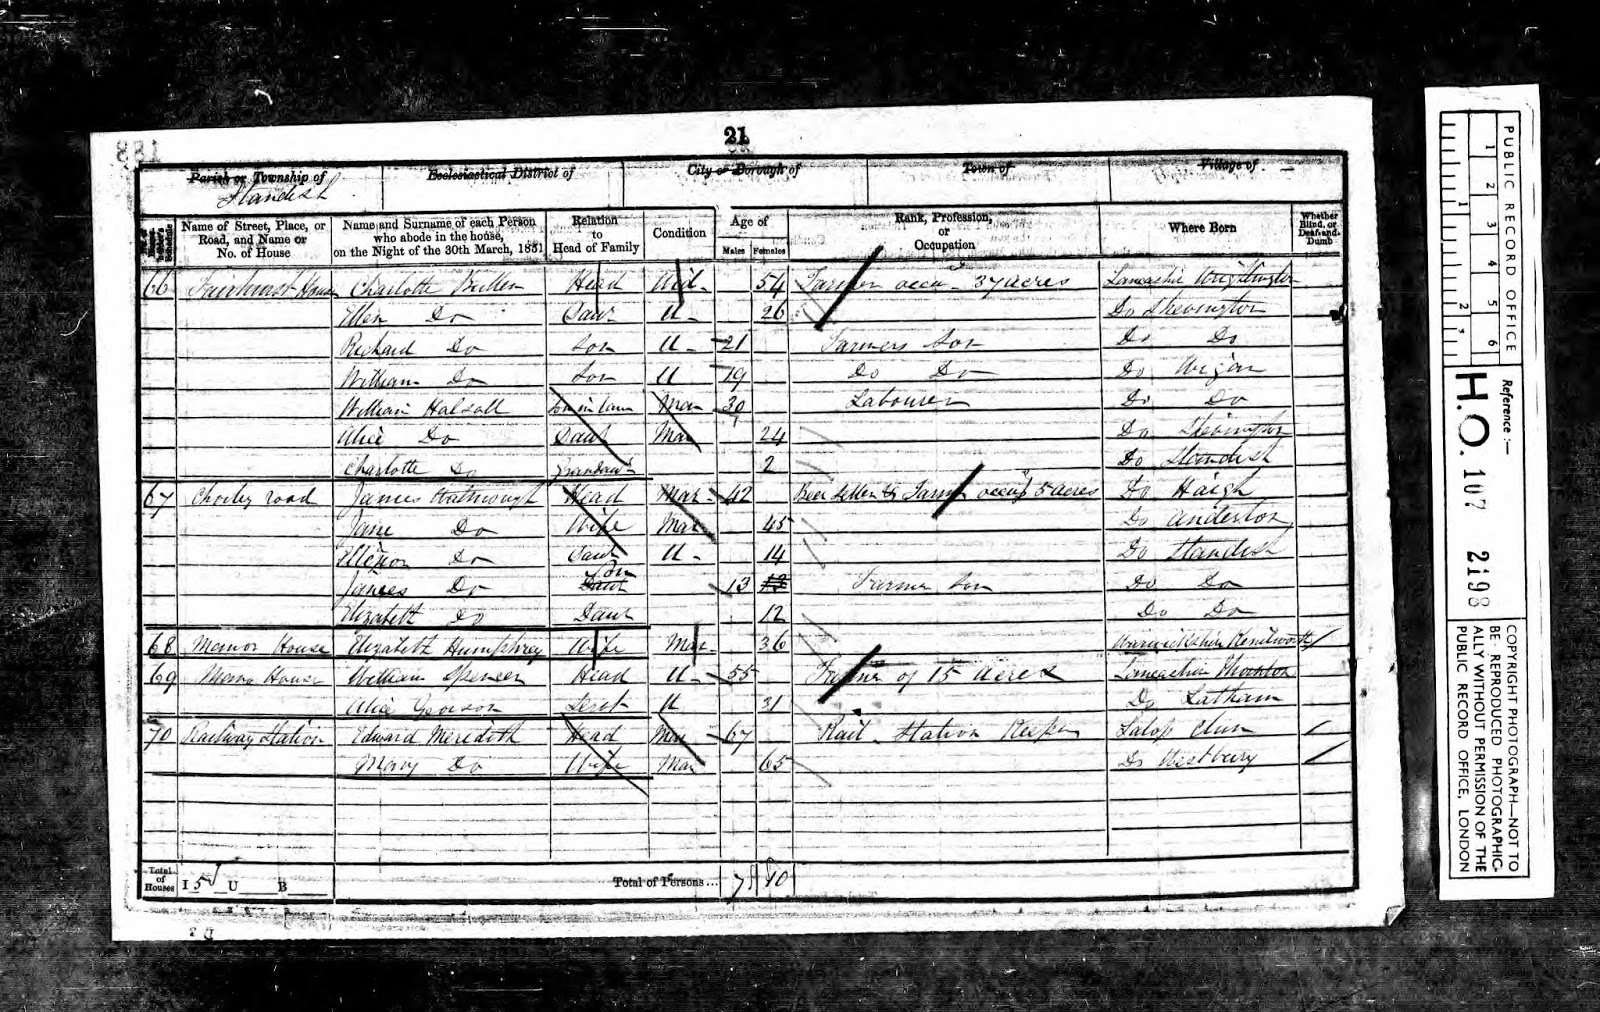 21
Parish or Township of Ecclesiastical District of City or Borough of Town of Village of
Standish
Name of Street, Place, or Road, and Name or No. of House
Name and Surname of each Person who abode in the house, on the Night of the 30th March, 1851
Relation to Head of Family
Condition
Age of
Males Females
Rank, Profession, or Occupation
Where Born
Whether Blind, or Deaf-and-Dumb
66 Fairhurst House Charlotte Head Wid - 54 Farmer occu 37 acres Lancashire Wrightington
Ellen Do Daur U - 26 Do Shevington
Richard Do Son U - 21 Farmers Son Do Do
William Do Son U 19 Do Do Do Wigan
William Halsall Son in law Mar 30 Labourer Do Do
Alice Do Daur Mar 24 Do Shevington
Charlotte Do Grandaur 2 Do Standish
67 Chorley road James Head Mar - 42 Beer Seller & Farmer occup 5 acres Do Haigh
Jane Do Wife Mar 45 Do Anderton
Do Daur U - 14 Do Standish
James Do Son Daur 13 13 Farmer Son Do Do
Elizabeth Do Daur 12 Do Do
68 Manor House Elizabeth Humphrey Wife Mar - 36 Warwickshire Kenilworth
69 House William Spencer Head U - 55 Farmer of 15 acres Lancashire
Alice Servt U 31 Do Latham
70 Railway Station Edward Meredith Head Mar 67 Rail. Station Keeper Salop Clun
Mary Do Wife Mar 65 Do Westbury
Total of Houses I 5 U B Total of Persons... 7 10
PUBLIC RECORD OFFICE
1 2 3 4 5 6
1 2
Reference :-
H.O. 107 2198
COPYRIGHT PHOTOGRAPH—NOT TO
BE REPRODUCED PHOTOGRAPHIC-
ALLY WITHOUT PERMISSION OF THE
PUBLIC RECORD OFFICE, LONDON